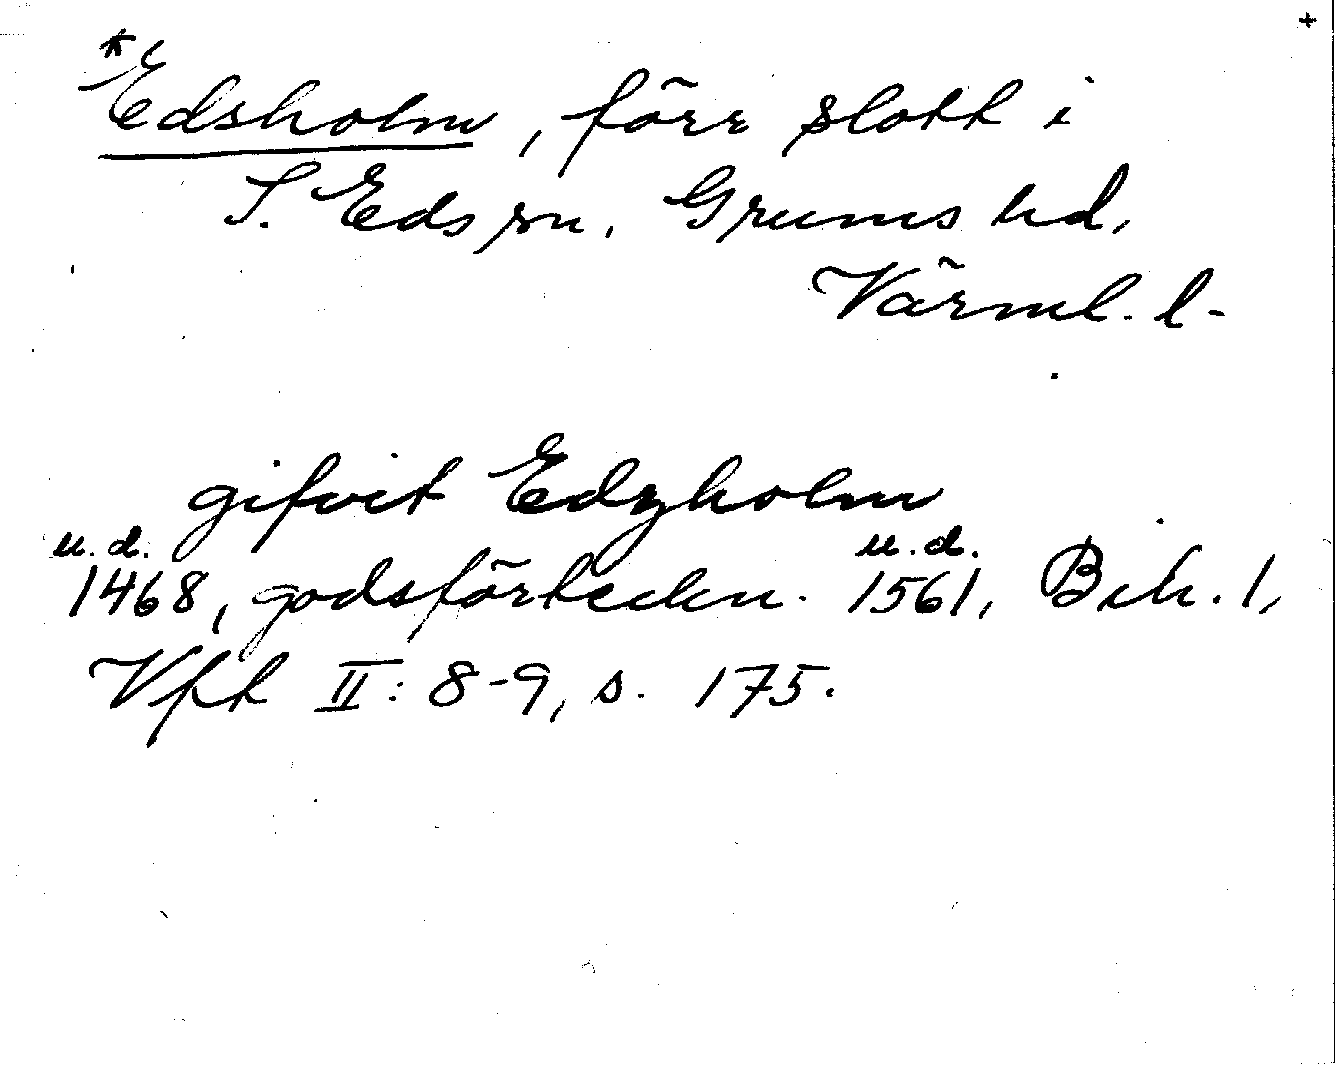 +
*Edsholm, förr slott i
S. Eds sn. Grums hd,
Värml. l.
gifvit Edzholm
u.d. u.d.
1468, godsförteckn. 1561, Bih. 1,
Vfht II: 8-9, s. 175.